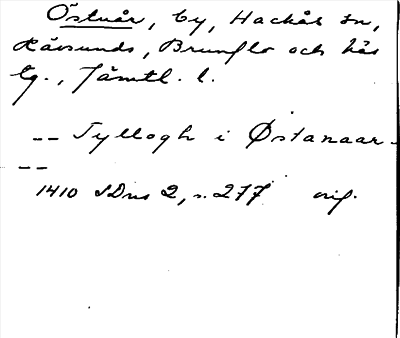 Östnår, by, Hackås sn,
Rävsunds, Brunflo och Hås
tg., Jämtl. l.
-- Tyllogh i Østanaar -
--
1410 SDns 2, s. 277 orig.